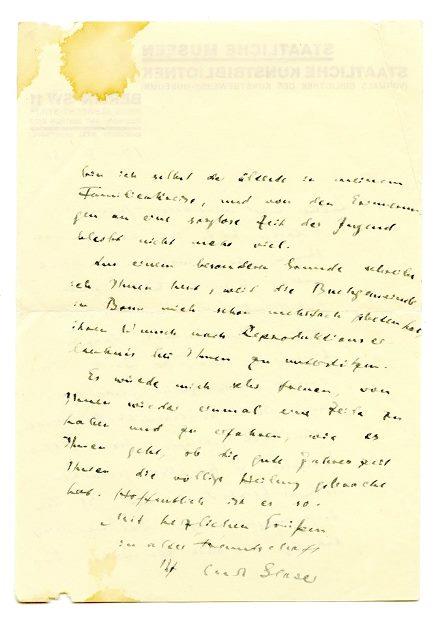 STAATLICHE MUSEEN
STAATLICHE KUNSTBIBLIOTHEK
BERLIN SW 11
bin ich selbst der älteste in meinem
Familienkreise, und von den Erinnerun-
gen an eine sorglose Zeit der Jugend
bleibt nicht mehr viel.
Aus einem besonderen Grunde schreibe
ich Ihnen heut, weil die Buchgemeinde
in Bonn mich schon mehrfach gebeten hat
ihren Wunsch nach Reproduktionser-
laubnis bei Ihnen zu unterstützen.
Es würde mich sehr freuen, von
Ihnen wieder einmal eine Zeile zu
haben und zu erfahren, wie es
Ihnen geht, ob die gute Jahreszeit
Ihnen die völlige Heilung gebracht
hat. Hoffentlich ist es so.
Mit herzlichen Grüßen
in alter Freundschaft
Ihr Curt Glaser